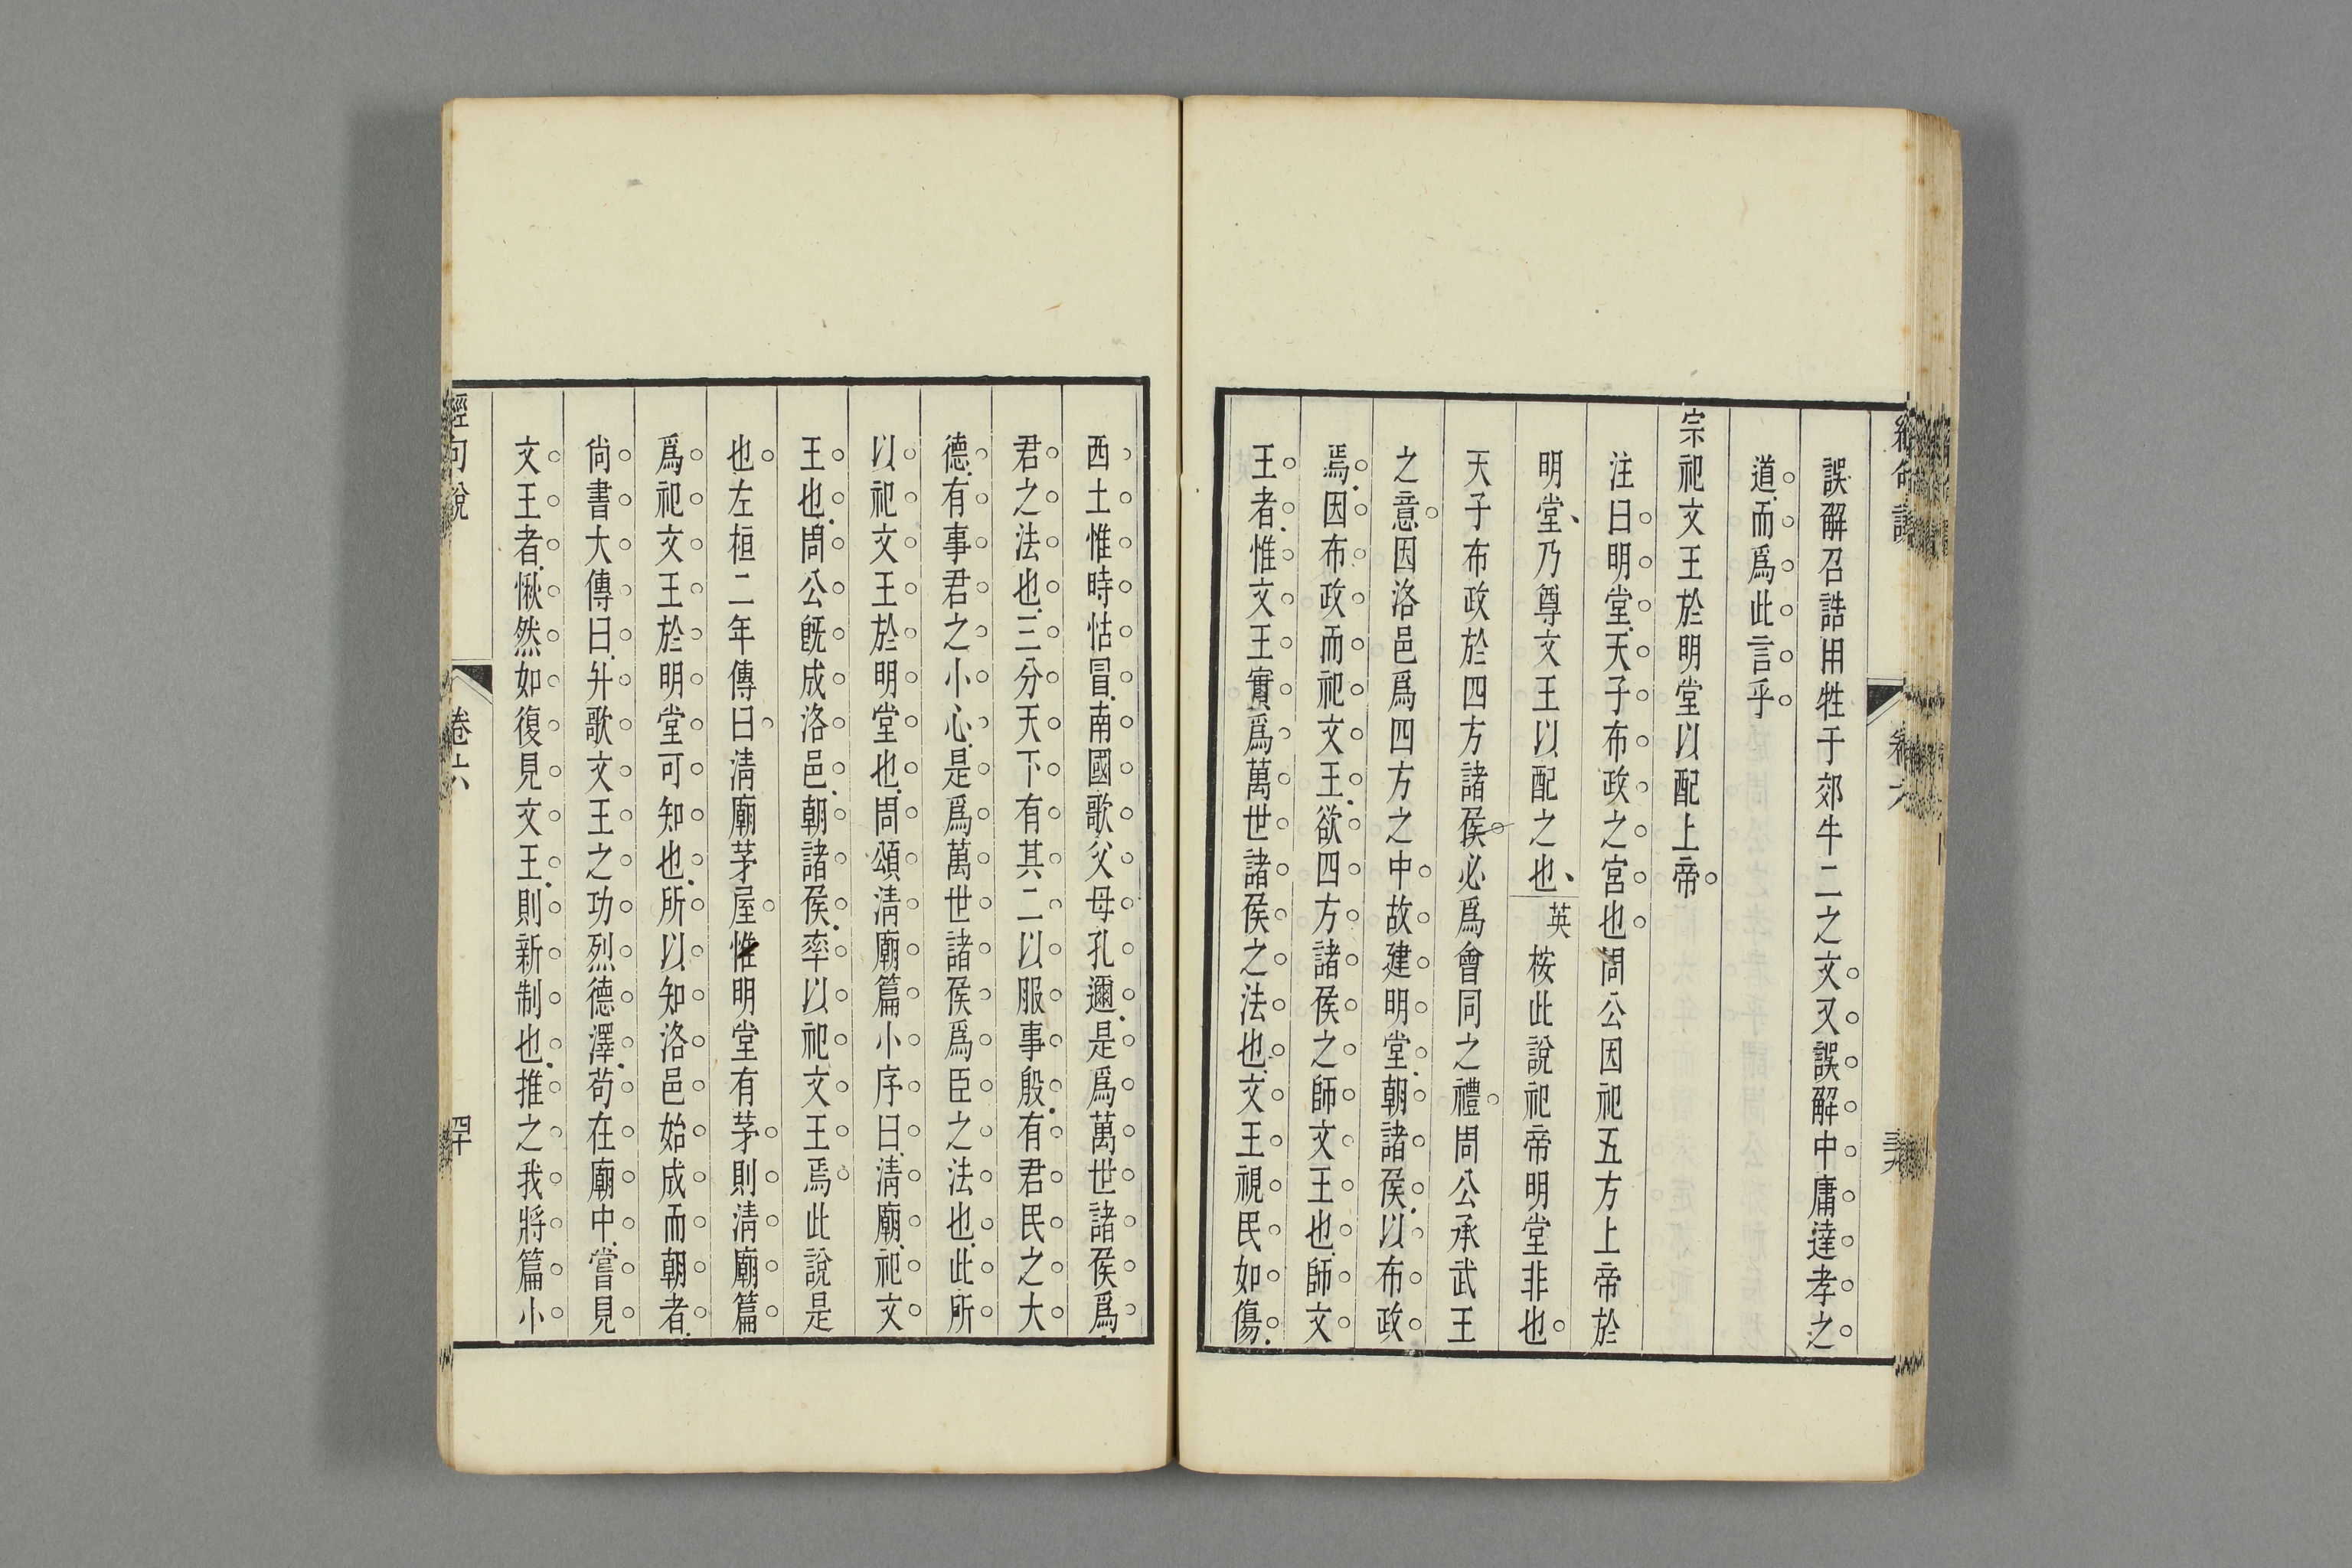 誤解召誥用牲于郊牛二之文又誤解中庸達孝之
道而爲此言乎
宗祀文王於明堂以配上帝
注曰明堂天子布政之宮也周公因祀五方上帝於
明堂乃尊文王以配之也英按此說祀帝明堂非也
天子布政於四方諸侯必爲會同之禮周公承武王
之意因洛邑爲四方之中故建明堂朝諸侯以布政
焉因布政而祀文王欲四方諸侯之師文王也師文
王者惟文王實爲萬世諸侯之法也文王視民如傷
西土惟時怙冒南國歌父母孔邇是爲萬世諸侯爲
君之法也三分天下有其二以服事殷有君民之大
德有事君之小心是爲萬世諸侯爲臣之法也此所
以祀文王於明堂也周頌清廟篇小序曰清廟祀文
王也周公旣成洛邑朝諸侯率以祀文王焉此說是
也左桓二年傳曰清廟茅屋惟明堂有茅則清廟篇
爲祀文王於明堂可知也所以知洛邑始成而朝者
尙書大傳曰升歌文王之功烈德澤苟在廟中嘗見
文王者愀然如復見文王則新制也推之我將篇小
經句說
卷六